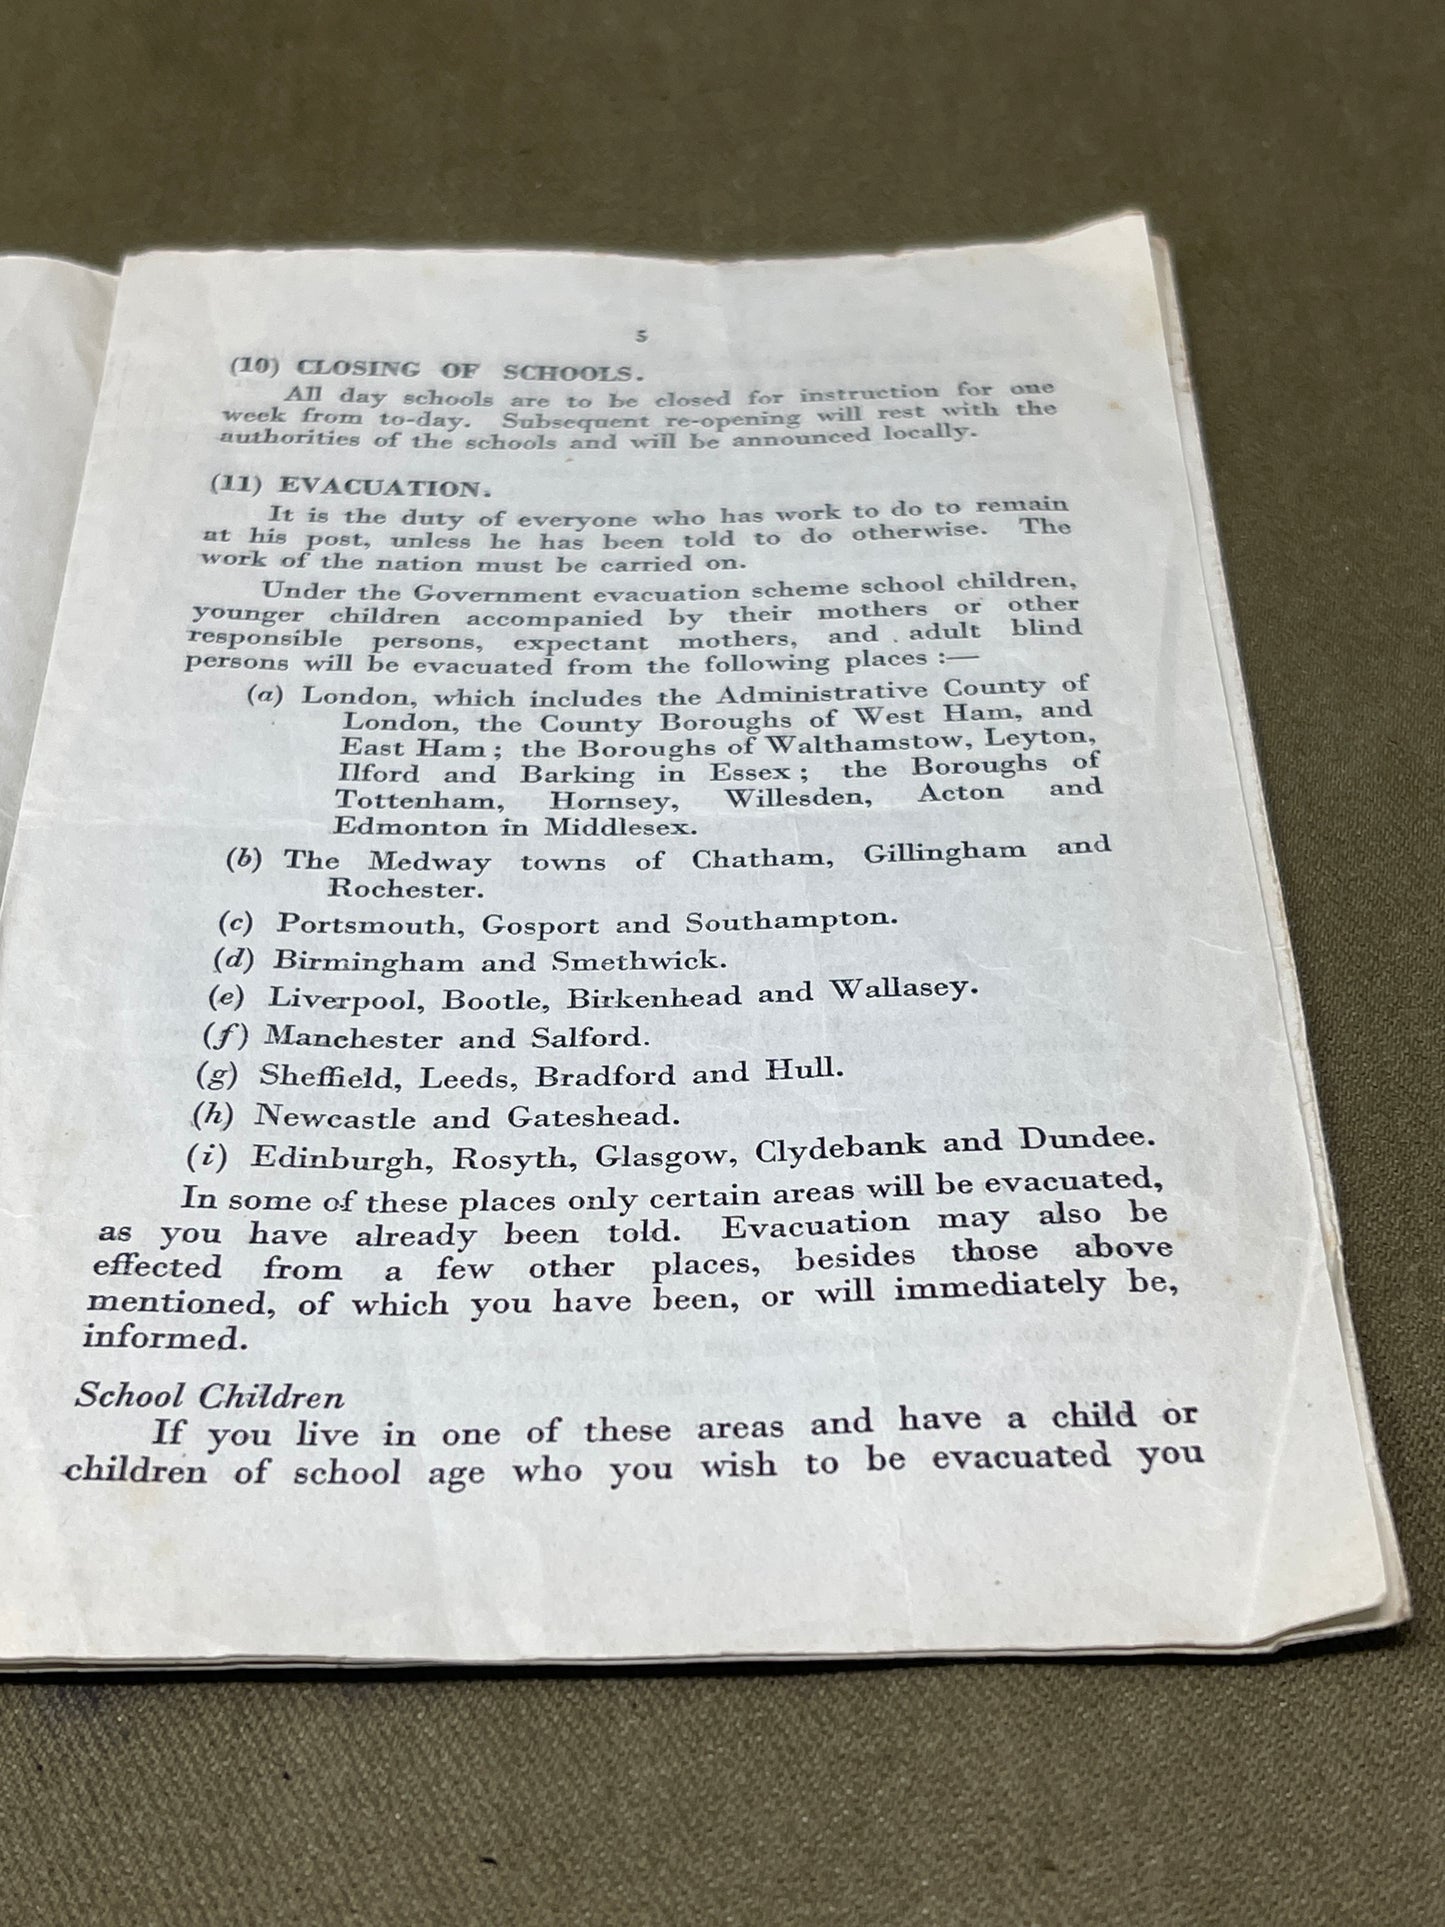 5
(10) CLOSING OF SCHOOLS.
All day schools are to be closed for instruction for one
week from to-day. Subsequent re-opening will rest with the
authorities of the schools and will be announced locally.
(11) EVACUATION.
It is the duty of everyone who has work to do to remain
at his post, unless he has been told to do otherwise. The
work of the nation must be carried on.
Under the Government evacuation scheme school children,
younger children accompanied by their mothers or other
responsible persons, expectant mothers, and adult blind
persons will be evacuated from the following places :—
(a) London, which includes the Administrative County of
London, the County Boroughs of West Ham, and
East Ham ; the Boroughs of Walthamstow, Leyton,
Ilford and Barking in Essex ; the Boroughs of
Tottenham, Hornsey, Willesden, Acton and
Edmonton in Middlesex.
(b) The Medway towns of Chatham, Gillingham and
Rochester.
(c) Portsmouth, Gosport and Southampton.
(d) Birmingham and Smethwick.
(e) Liverpool, Bootle, Birkenhead and Wallasey.
(f) Manchester and Salford.
(g) Sheffield, Leeds, Bradford and Hull.
(h) Newcastle and Gateshead.
(i) Edinburgh, Rosyth, Glasgow, Clydebank and Dundee.
In some of these places only certain areas will be evacuated,
as you have already been told. Evacuation may also be
effected from a few other places, besides those above
mentioned, of which you have been, or will immediately be,
informed.
School Children
If you live in one of these areas and have a child or
children of school age who you wish to be evacuated you